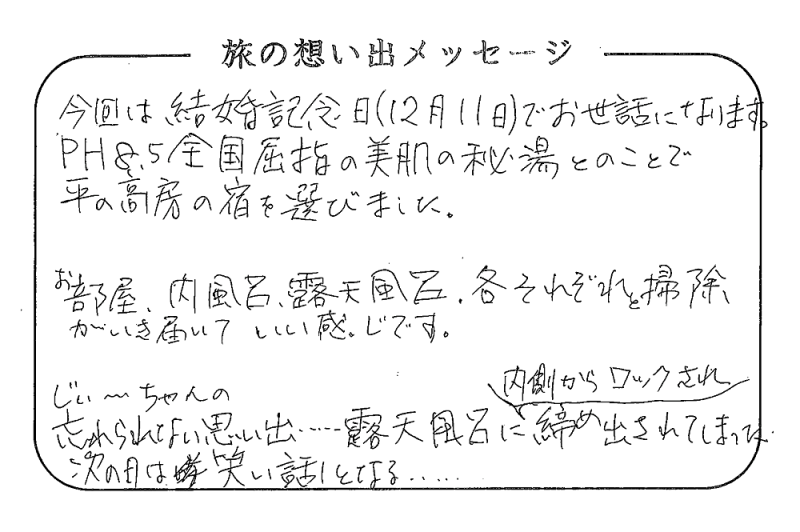 旅の想い出メッセージ
今回は結婚記念日(12月11日)でお世話になります。
PH8.5全国屈指の美肌の秘湯とのことで
平の高房の宿を選びました。
お部屋、内風呂、露天風呂、各それぞれと掃除
がいき届いて いい感じです。
じぃ〜ちゃんの
忘れられない思い出……露天風呂に内側からロックされ締め出されてしまった
次の日は笑い話となる……